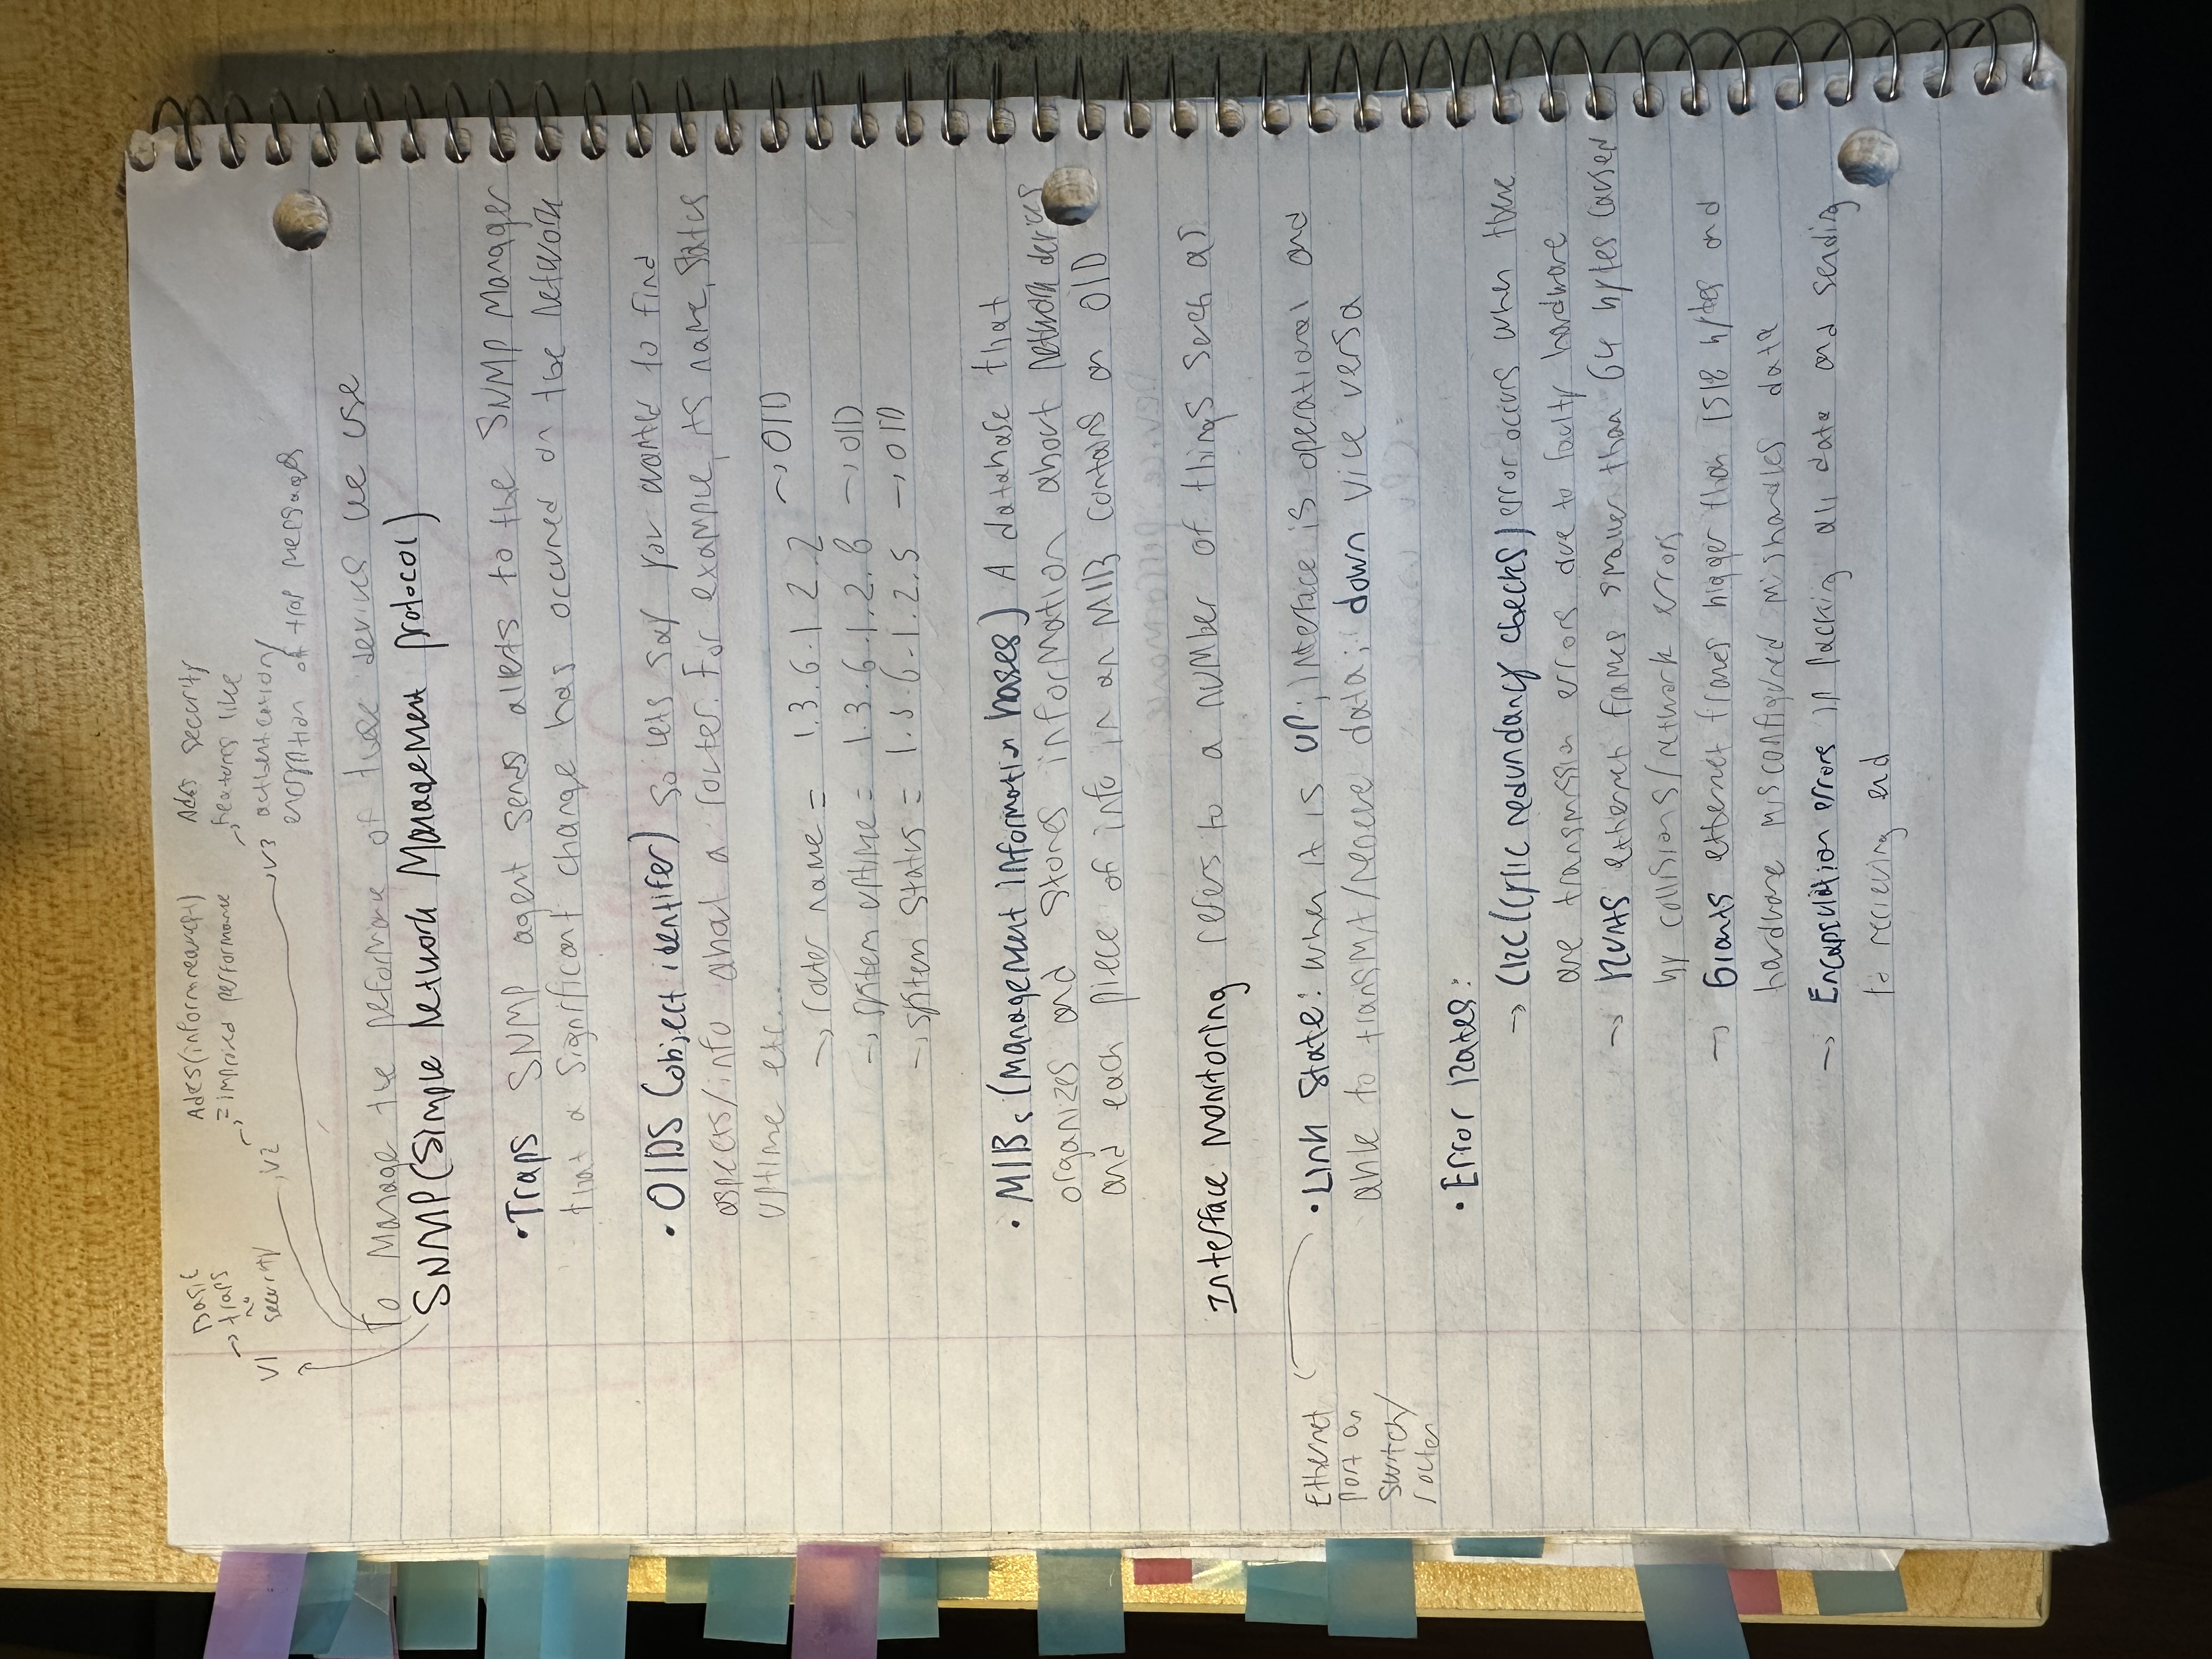 Basic
→ traps
no
V1 security
Adds (inform request)
= improved performance
V2
Adds security
features like
V3 authentication/
encryption of trap messages
To Manage the peformance of these devices we use
SNMP (Simple Network Management protocol)
• Traps SNMP agent sends alerts to the SNMP Manager
that a significant change has occured on the Network
• OIDS (object identifer) so lets say you wanted to find
aspects/info about a router. For example, its name, status
uptime etc...
→ router name = 1.3.6.1 2.2 → OID
→ system uptime = 1.3.6.1.2.8 → OID
→ system status = 1.3.6.1.2.5 → OID
• MIBs (Management information bases) A database that
organizes and stores information about Network devices
and each piece of info in an MIB contains an OID
Interface Monitoring refers to a number of things such as
• Link State: when it is UP; interface is operational and
able to transmit/recieve data; down vice versa
Ethernet
port on
switch/
router
• Error Rates:
→ CRC (cyclic redundancy checks) error occurs when there
are transmission errors due to faulty hardware
→ Runts ethernet frames smaller than 64 bytes caused
by collisions/network errors
→ Giants ethernet frames bigger than 1518 bytes and
hardware misconfigured mishandles data
→ Encapsulation errors in packing all data and sending
to recieving end